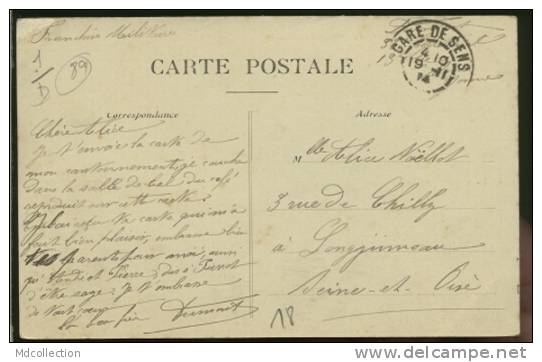 Franchise Militaire
GARE DE SENS
4 10
19-11
14
1
D
89
CARTE POSTALE
Correspondance
Adresse
Chère Alice
Je t'envoie la carte de
mon cantonnement, je couche
dans la salle de bal du café
reproduit sur cette carte.
J'ai reçu ta carte qui m'a
fait bien plaisir, embrasse bien
tes parents pour moi, ainsi
qu'André et Pierre, dis à
d'être sage. Je t'embrasse
de tout cœur
Mlle Alice Noëllot
3 rue de Chilly
à Longjumeau
Seine-et-Oise
18
Mdcollection
http://www.delcampe.net